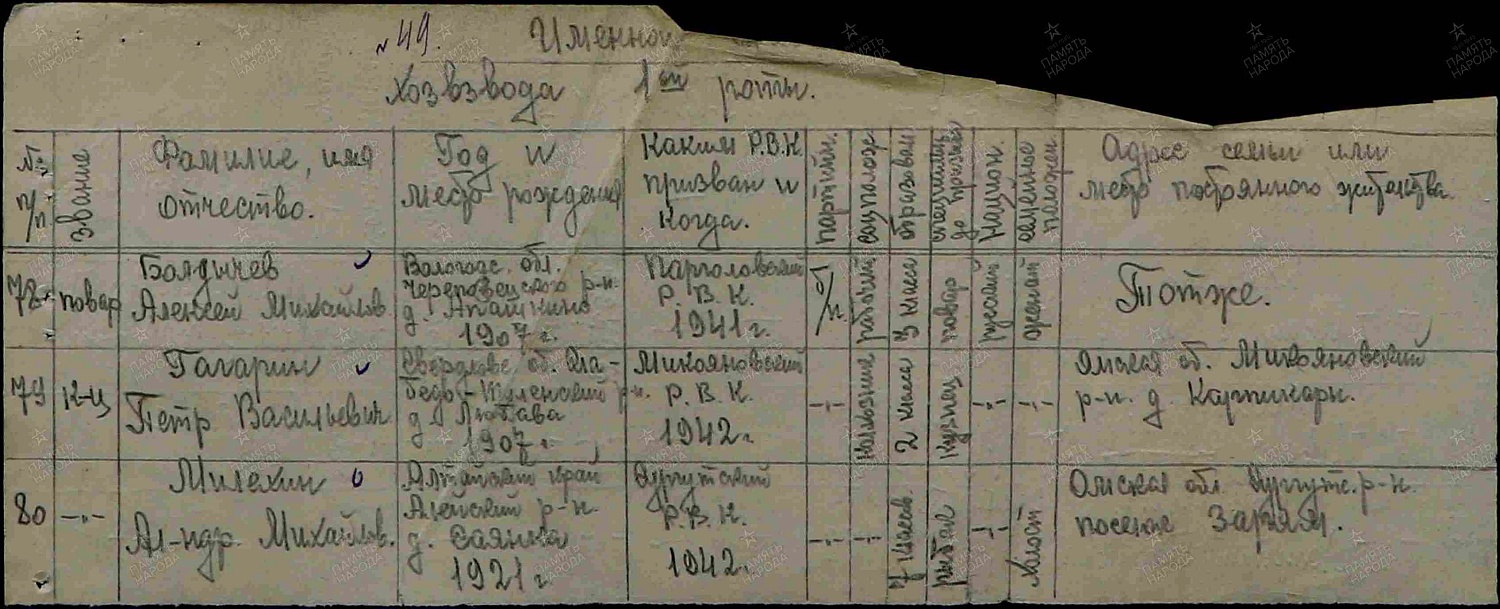 №49. Именной
хозвзвода 1ой роты.
№ п/п
Звание
Фамилие, имя
отчество.
Год и
место рождения
Каким Р.В.К.
призван и
когда.
партийн.
соцположе
образован
специальн.
до призыва
Национ.
семейное
положен
Адрес семьи или
место постоянного жительства.
78.
повар
Болдычев
Алексей Михайлов
Вологодс. обл.
Череповецского р-н.
д.
1907 г.
Парголовский
Р. В. К.
1941 г.
б/п
рабочий
3 класса
повар
русский
женат
Тотже.
79
К-ц
Гагарин
Петр Васильевич
Свердловс. об. Ела-
р-н.
д.
1907 г.
Микояновский
Р. В. К.
1942 г.
-"-
Колхозник
2 класса
Кузнец
-"-
-"-
Омская об. Микояновский
р-н. д. Карымкары.
80
-"-
Милехин
Ал-ндр. Михайлов.
Алтайский край
Алейский р-н.
д. Саянка
1921 г.
Сургутский
Р. В. К.
1942 г.
-"-
-"-
7 классов.
рыбак
-"-
холост
Омская обл. Сургутс. р-н.
поселок Зарям.
ПАМЯТЬ
НАРОДА